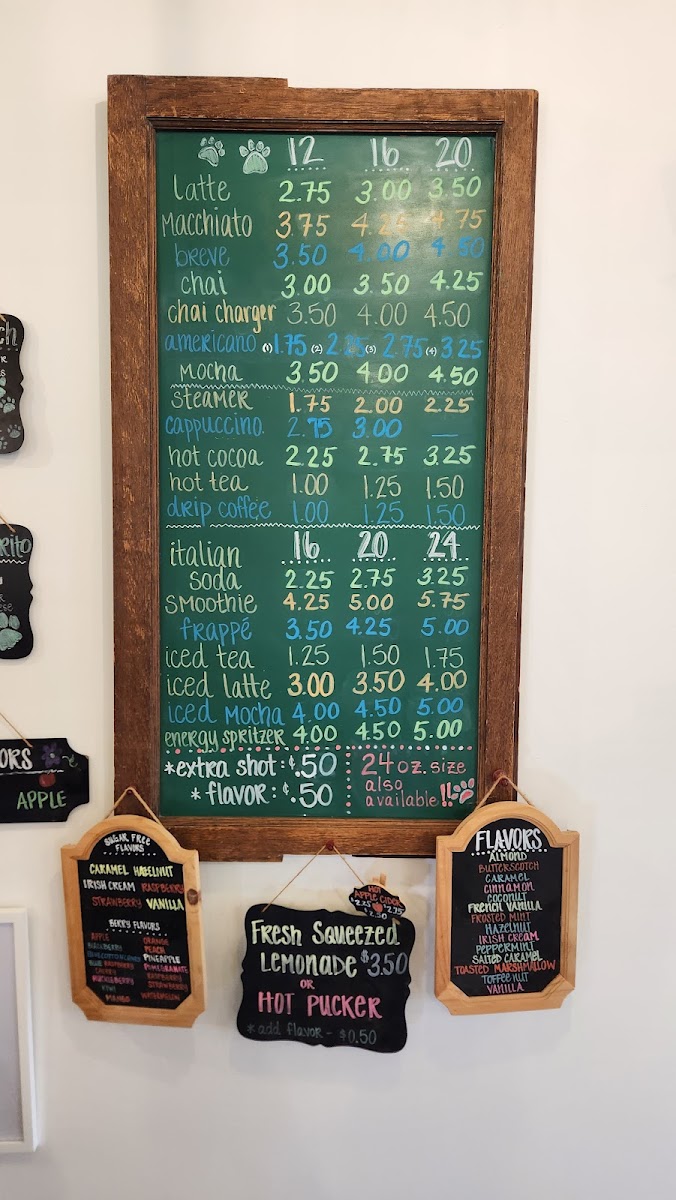 12 16 20
latte 2.75 3.00 3.50
MACCHIATO 3.75 4.25 4.75
breve 3.50 4.00 4.50
chai 3.00 3.50 4.25
chai charger 3.50 4.00 4.50
americano (1) 1.75 (2) 2.25 (3) 2.75 (4) 3.25
MOCHA 3.50 4.00 4.50
STEAMER 1.75 2.00 2.25
CAPPUCCINO 2.75 3.00 —
hot cocoa 2.25 2.75 3.25
hot tea 1.00 1.25 1.50
drip coffee 1.00 1.25 1.50
16 20 24
italian
soda 2.25 2.75 3.25
SMOOTHIE 4.25 5.00 5.75
frappé 3.50 4.25 5.00
iced tea 1.25 1.50 1.75
iced latte 3.00 3.50 4.00
iced MOCHA 4.00 4.50 5.00
energy spritzer 4.00 4.50 5.00
*extra shot: ¢.50
*flavor: ¢.50
24 oz. size
also
available!!
ORS
APPLE
SUGAR FREE
FLAVORS
CARAMEL HAZELNUT
IRISH CREAM RASPBERRY
STRAWBERRY VANILLA
BERRY FLAVORS
APPLE ORANGE
BLACKBERRY PEACH
PINEAPPLE
BLUE RASPBERRY POMEGRANATE
CHERRY RASPBERRY
HUCKLEBERRY STRAWBERRY
KIWI
MANGO WATERMELON
HOT
APPLE CIDER
$2.25 $2.75
$2.50
FRESH SQUEEZED
LEMONADE $3.50
OR
HOT PUCKER
*add flavor - $0.50
FLAVORS
ALMOND
BUTTERSCOTCH
CARAMEL
CINNAMON
COCONUT
FRENCH VANILLA
FROSTED MINT
HAZELNUT
IRISH CREAM
PEPPERMINT
SALTED CARAMEL
TOASTED MARSHMALLOW
TOFFEE NUT
VANILLA